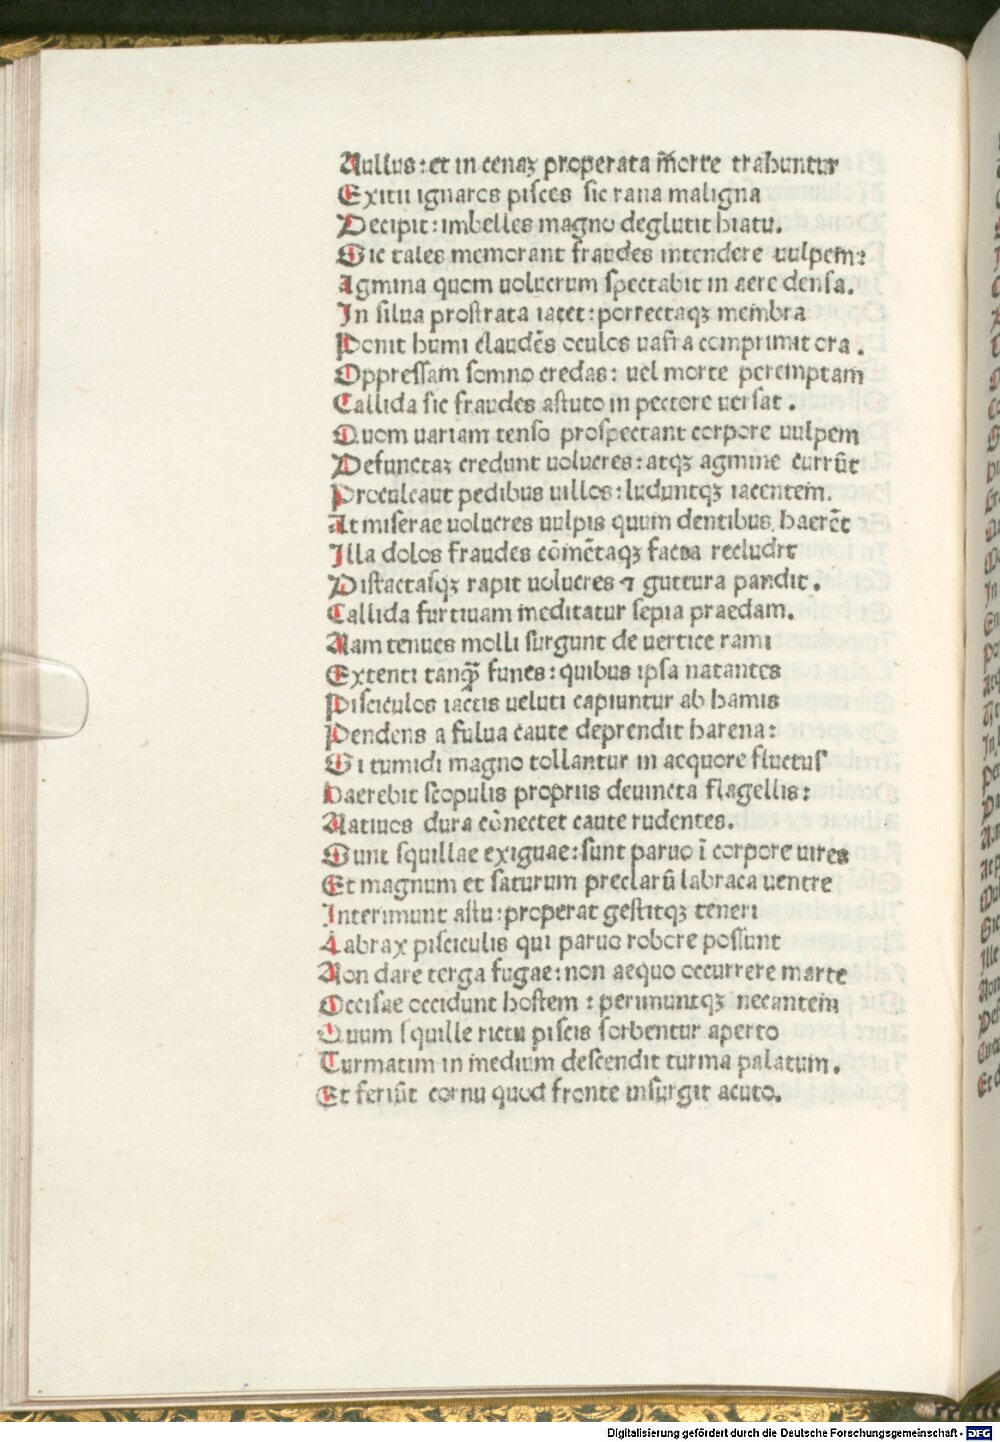 Nullus: et in cenaꝫ properata m̃orte trahuntur
Exitii ignaros pisces sic rana maligna
Decipit: imbelles magno deglutit hiatu.
Sic tales memorant fraudes intendere uulpem:
Agmina quom uolucrum spectabit in aere densa.
In silua prostrata iacet: porrectaqꝫ membra
Ponit humi claudẽs oculos uafra comprimit ora.
Oppressam somno credas: uel morte peremptam
Callida sic fraudes astuto in pectore uersat.
Quom uariam tenso prospectant corpore uulpem
Defunctaꝫ credunt uolucres: atqꝫ agmine currũt
Proculcaut pedibus uillos: luduntqꝫ iacentem.
At miserae uolucres uulpis quum dentibus haerẽt
Illa dolos fraudes cõmẽtaqꝫ facta recludit
Distactasqꝫ rapit uolucres ⁊ guttura pandit.
Callida furtiuam meditatur sepia praedam.
Nam tenues molli surgunt de uertice rami
Extenti tanqꝫ̃ funes: quibus ipsa natantes
Pisciculos iactis ueluti capiuntur ab hamis
Pendens a fulua caute deprendit harena:
Si tumidi magno tollantur in aequore fluctus
Haerebit scopulis propriis deuincta flagellis:
Natiuos dura cõnectet caute rudentes.
Sunt squillae exiguae: sunt paruo ĩ corpore uires
Et magnum et saturum preclarũ labraca uentre
Interimunt astu: properat gestitqꝫ teneri
Labrax pisciculis qui paruo robore possunt
Non dare terga fugae: non aequo occurrere marte
Occisae occidunt hostem: perimuntqꝫ necantem
Quum squille rictu piscis sorbentur aperto
Turmatim in medium descendit turma palatum.
Et feriũt cornu quod fronte insurgit acuto.
Digitalisierung gefördert durch die Deutsche Forschungsgemeinschaft - DFG